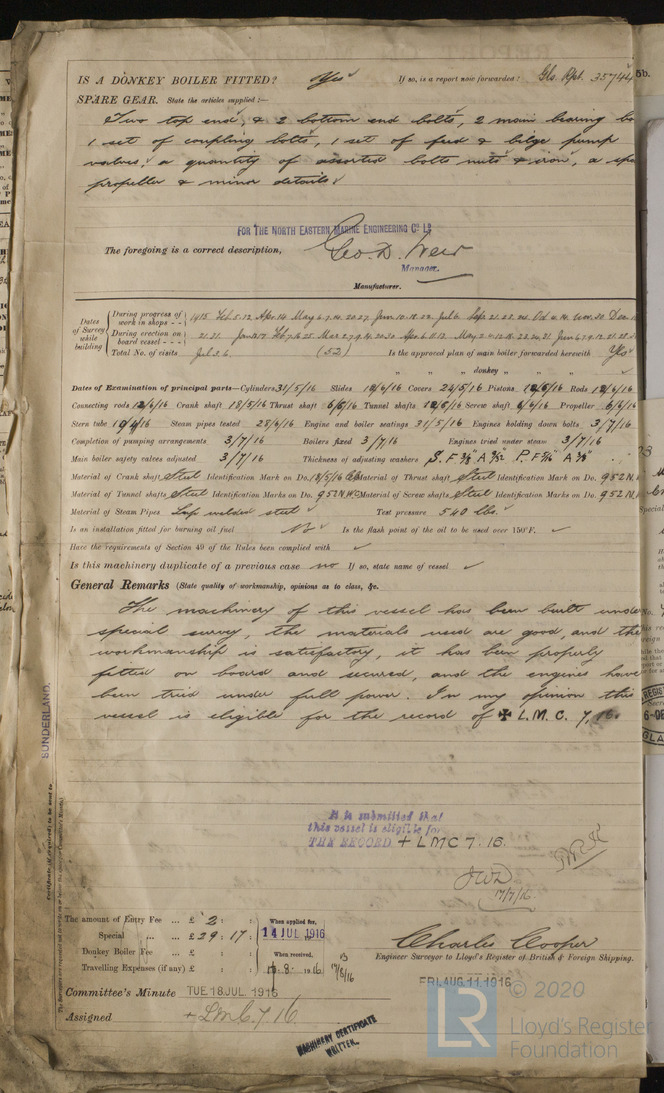 IS A DONKEY BOILER FITTED? Yes If so, is a report now forwarded? Gls. Rpt. 35744
SPARE GEAR. State the articles supplied:—
Two top end, & 2 bottom end bolts, 2 main bearing bo
1 set of coupling bolts, 1 set of feed & bilge pump
valves, a quantity of assorted bolts nuts & iron, a spa
propeller & minor details
FOR THE NORTH EASTERN MARINE ENGINEERING Co. Ld.
The foregoing is a correct description, Geo. D. Weir
Manager.
Manufacturer.
Dates of Survey while building
During progress of work in shops - - 1915 Feb. 5. 12 Apr. 14 May 6. 7. 14. 20. 27 Jun. 10. 18. 22 July 6
During erection on board vessel - - -
Total No. of visits Jul. 3. 6. (52) Is the approved plan of main boiler forwarded herewith Yes
" " " donkey " "
Dates of Examination of principal parts—Cylinders 31/5/16 Slides 10/6/16 Covers 24/5/16 Pistons 10/6/16 Rods 12/6/16
Connecting rods 12/6/16 Crank shaft 18/5/16 Thrust shaft 6/6/16 Tunnel shafts 10/6/16 Screw shaft 6/6/16 Propeller 6/6/16
Stern tube 19/4/16 Steam pipes tested 28/6/16 Engine and boiler seatings 31/5/16 Engines holding down bolts 3/7/16
Completion of pumping arrangements 3/7/16 Boilers fixed 3/7/16 Engines tried under steam 3/7/16
Main boiler safety valves adjusted 3/7/16 Thickness of adjusting washers S. F 3/8" A P. F A
Material of Crank shaft Steel Identification Mark on Do. 18/5/16 Material of Thrust shaft Steel Identification Mark on Do. 952 N.
Material of Tunnel shafts Steel Identification Marks on Do. 952 N. Material of Screw shafts Steel Identification Marks on Do. 952 N.
Material of Steam Pipes Lap welded steel Test pressure 540 lbs.
Is an installation fitted for burning oil fuel No Is the flash point of the oil to be used over 150°F.
Have the requirements of Section 49 of the Rules been complied with
Is this machinery duplicate of a previous case no If so, state name of vessel
General Remarks (State quality of workmanship, opinions as to class, &c.
The machinery of this vessel has been built unde
special survey, the materials used are good, and the
workmanship is satisfactory, it has been properly
fitted on board and secured, and the engines have
been tried under full power. In my opinion this
vessel is eligible for the record of ✠ L.M.C. 7, 16.
SUNDERLAND.
Certificate (if required) to be sent to
It is submitted that
this vessel is eligible for
THE RECORD + LMC 7. 16.
JWD
17/7/16.
The amount of Entry Fee ... £ 2 : :
Special ... £ 29 : 17 :
Donkey Boiler Fee ... £ : :
Travelling Expenses (if any) £ : :
When applied for,
14 JUL 1916
When received,
8. 1916
Charles Cooper
Engineer Surveyor to Lloyd's Register of British & Foreign Shipping.
Committee's Minute TUE 18 JUL. 1916 FRI. AUG. 11. 1916
Assigned + LMC. 7. 16
MACHINERY CERTIFICATE
WRITTEN.
© 2020
LR
Lloyd's Register
Foundation